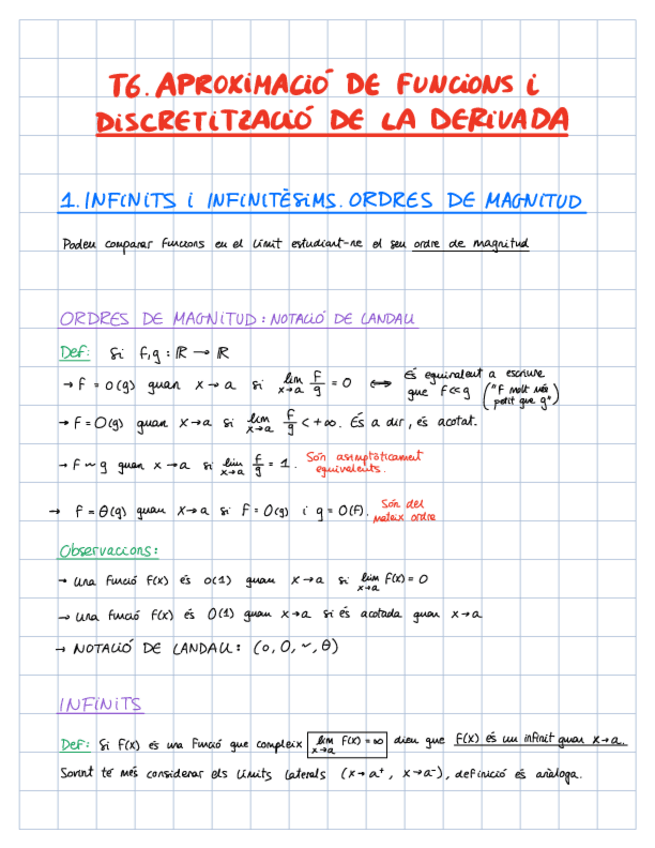 T6. APROXIMACIÓ DE FUNCIONS i
DISCRETITZACIÓ DE LA DERIVADA
1. INFINITS i INFINITÈSIMS. ORDRES DE MAGNITUD
Podeu comparar funcions en el límit estudiant-ne el seu ordre de magnitud
ORDRES DE MAGNITUD: NOTACIÓ DE LANDAU
Def: Si f,g : ℝ → ℝ
→ f = o(g) quan x→a si lim x→a f/g = 0 ⟺ És equivalent a escriure que f<<g ("f molt més petit que g")
→ f = O(g) quan x→a si lim x→a f/g < +∞. És a dir, és acotat.
→ f ~ g quan x→a si lim x→a f/g = 1. Són asimptòticament equivalents.
→ f = θ(g) quan x→a si f = O(g) i g = O(f). Són del mateix ordre
Observacions:
→ una funció f(x) és o(1) quan x→a si lim x→a f(x) = 0
→ una funció f(x) és O(1) quan x→a si és acotada quan x→a
→ NOTACIÓ DE LANDAU: (o, O, ~, θ)
INFINITS
Def: Si f(x) és una funció que compleix lim x→a f(x) = ∞ dieu que f(x) és un infinit quan x→a.
Sovint té més considerar els límits laterals (x→a⁺, x→a⁻), definició és anàloga.